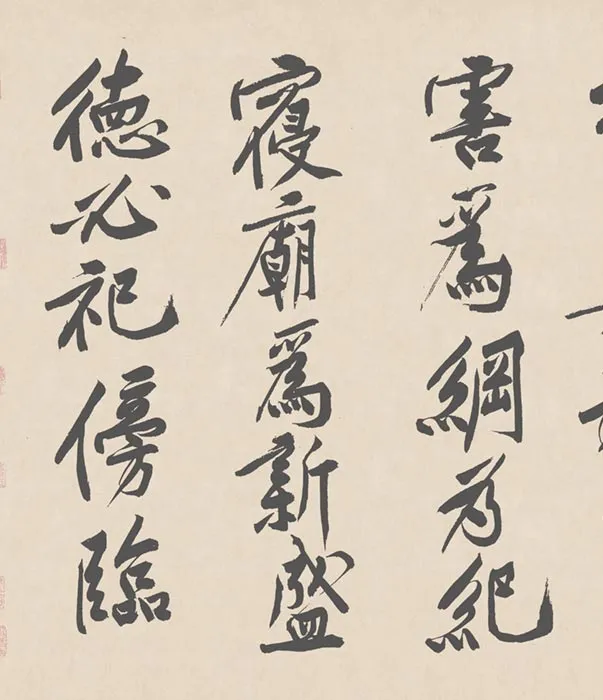 害爲綱為紀
寢廟爲新盛
德必祀傍臨